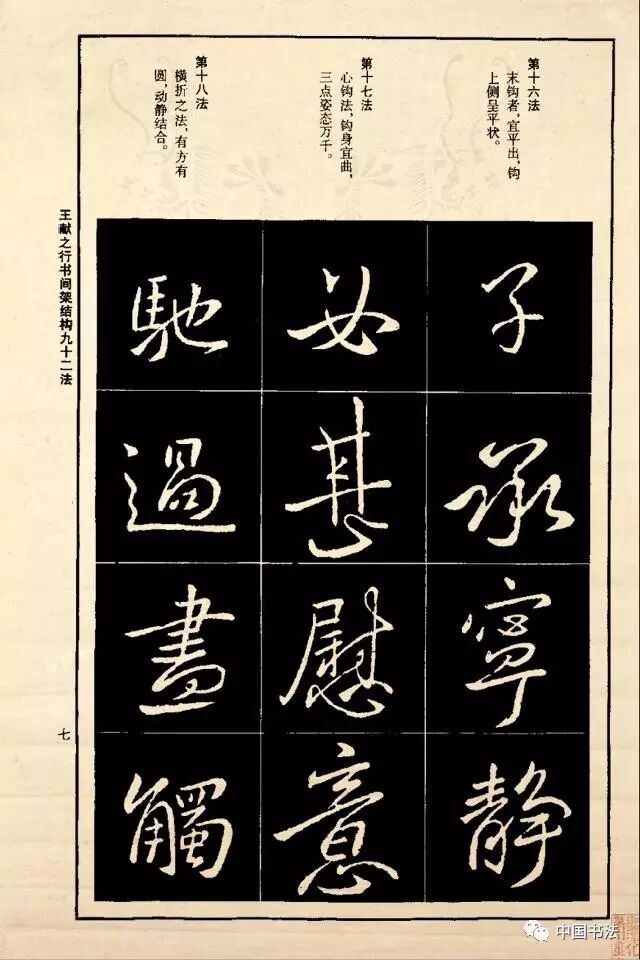 第十六法
末钩者，宜平出，钩
上侧呈平状。
第十七法
心钩法，钩身宜曲，
三点姿态万千。
第十八法
横折之法，有方有
圆，动静结合。
子承寧静
必慰意
馳過盡觸
王献之行书间架结构九十二法
七
中国书法